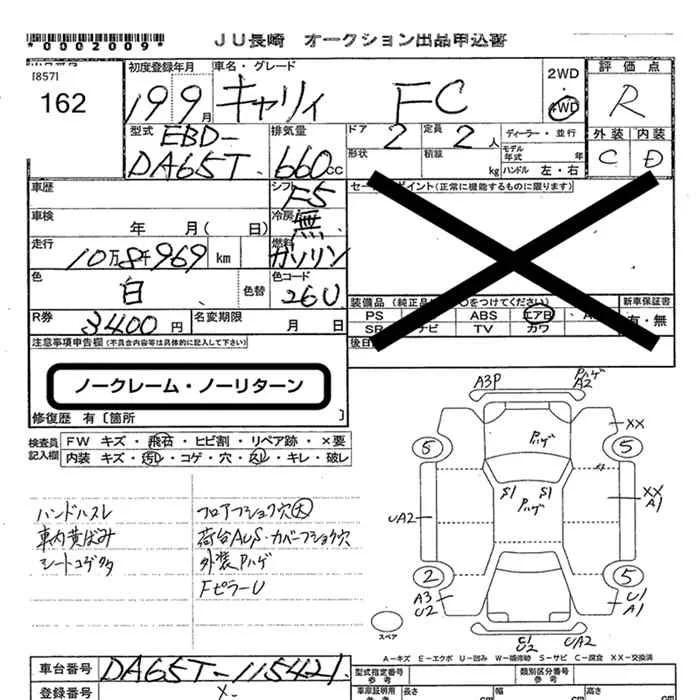 *0002009* JU長崎 オークション出品申込書
[857]
162
初度登録年月
19年9月
車名・グレード
キャリィ FC
2WD
4WD
評価点
R
外装 内装
C D
型式 EBD-
DA65T
排気量
660cc
ドア 2
定員 2人
ディーラー・並行
形状
積載 kg
モデル年式 年
ハンドル 左・右
車歴
シフト F5
車検 年 月(日)
冷房 無
走行 10万8千969 km
燃料 ガソリン
色 白 色替
色コード 26U
R券 8400円
名変期限 月 日
セールスポイント(正常に機能するものに限ります)
装備品(純正品 ○をつけてください)
新車保証書
有・無
PS ABS エアB
SR ナビ TV カワ
後日
注意事項申告欄(不具合内容等は具体的に記入して下さい)
ノークレーム・ノーリターン
修復歴 有〔箇所 〕
検査員記入欄
FW キズ・飛石・ヒビ割・リペア跡・×要
内装 キズ・汚レ・コゲ・穴・スレ・キレ・破レ
ハンドルスレ
車内黄ばみ
シートコゲ
フロアフショク穴大
荷台AUS・カバーフショク穴
外装Pハゲ
FピラーU
A3P
Pハゲ
A2
XX
5
5
Pハゲ
S1 S1
Pハゲ
UA2
XX
A1
2
5
A3
U2
U1
A1
U2
UA2
スペア
A-キズ E-エクボ U-凹み W-補修跡 S-サビ C-腐食 XX-交換済
車台番号 DA65T-115421
登録番号
型式指定番号
参考
類別区分番号
参考
車庫証明用
参考
長さ cm
幅 cm
高さ cm